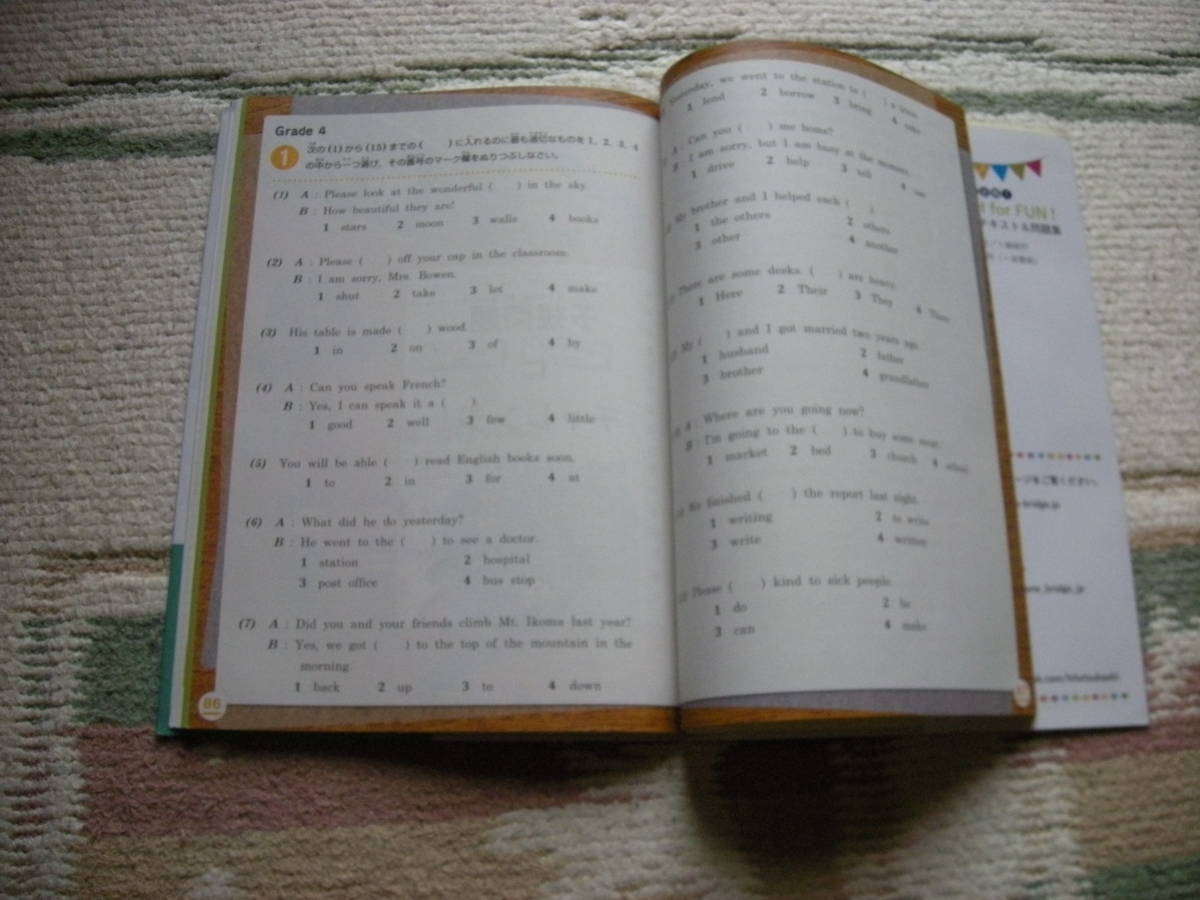 Grade 4
1 次の(1)から(15)までの( )に入れるのに最も適切なものを1, 2, 3, 4
の中から一つ選び, その番号のマーク欄をぬりつぶしなさい。
(1) A : Please look at the wonderful ( ) in the sky.
B : How beautiful they are!
1 stars 2 moon 3 walls 4 books
(2) A : Please ( ) off your cap in the classroom.
B : I am sorry, Mrs. Bowen.
1 shut 2 take 3 let 4 make
(3) His table is made ( ) wood.
1 in 2 on 3 of 4 by
(4) A : Can you speak French?
B : Yes, I can speak it a ( ).
1 good 2 well 3 few 4 little
(5) You will be able ( ) read English books soon.
1 to 2 in 3 for 4 at
(6) A : What did he do yesterday?
B : He went to the ( ) to see a doctor.
1 station 2 hospital
3 post office 4 bus stop
(7) A : Did you and your friends climb Mt. Ikoma last year?
B : Yes, we got ( ) to the top of the mountain in the
morning.
1 back 2 up 3 to 4 down
86
Yesterday, we went to the station to ( ) a
1 lend 2 borrow 3 bring 4 take
A : Can you ( ) me home?
B : I am sorry, but I am busy at the moment.
1 drive 2 help 3 tell 4
My brother and I helped each ( ).
1 the others 2 others
3 other 4 another
There are some desks. ( ) are heavy.
1 Here 2 Their 3 They 4
My ( ) and I got married two years ago.
1 husband 2 father
3 brother 4 grandfather
A : Where are you going now?
B : I'm going to the ( ) to buy some
1 market 2 bed 3 church 4 school
We finished ( ) the report last night.
1 writing 2 to write
3 write 4 written
Please ( ) kind to sick people.
1 do 2 be
3 can 4 make
for FUN!
キスト&問題集
ージをご覧ください。